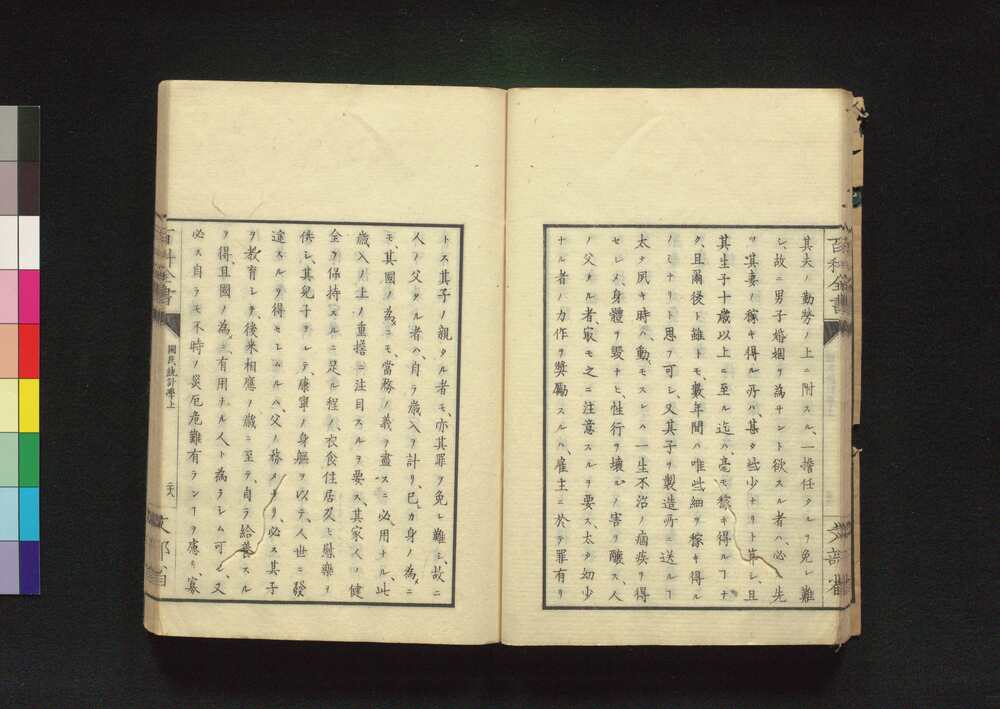 百科全書
文部省
其夫ノ勤勞ノ上ニ附スル、一擔任タルヲ免レ難
シ、故ニ男子婚姻ヲ為サント欲スル者ハ、必ス先
ツ其妻ノ稼キ得ル所ハ、甚タ些少ナリト算シ、且
其生子十歲以上ニ至ル迄ハ、毫モ稼キ得ルヿナ
ク、且爾後ト雖トモ、數年間ハ唯些細ヲ稼キ得ル
ノミナリト思フ可シ、又其子ヲ製造所ニ送ルヿ
太タ夙キ時ハ、動モスレハ一生不治ノ痼疾ヲ得
セシメ、身體ヲ毀ナヒ、性行ヲ壞ルノ害ヲ釀ス、人
ノ父タル者、最モ之ニ注意スルヲ要ス、太タ幼少
ナル者ノ力作ヲ獎勵スルハ、雇主ニ於テ罪有リ
トス其子ノ親タル者モ、亦其罪ヲ免レ難シ、故ニ
人ノ父タル者ハ、自ラ歲入ヲ計リ、已レカ身ノ為メニ
モ、其國ノ為メニモ、當務ノ義ヲ盡スニ必用ナル、此
歲入ノ上ノ重擔ニ注目スルヲ要ス、其家人ノ健
全ヲ保持スルニ足ル程ノ、衣食住居及ヒ慰樂ヲ
供シ、其兒子ヲシテ、康寧ノ身軀ヲ以テ、人世ニ發
途スルヲ得セシムルハ、父ノ務メナリ、必ス其子
ヲ教育シテ、後來相應ノ歲ニ至テ、自ラ給養スル
ヲ得、且國ノ為メニ有用ナル人ト為ラシム可シ、又
必ス自ラモ不時ノ災厄危難有ランヿヲ慮リ、寡
百科全書
國民統計學上
二十八
文部省